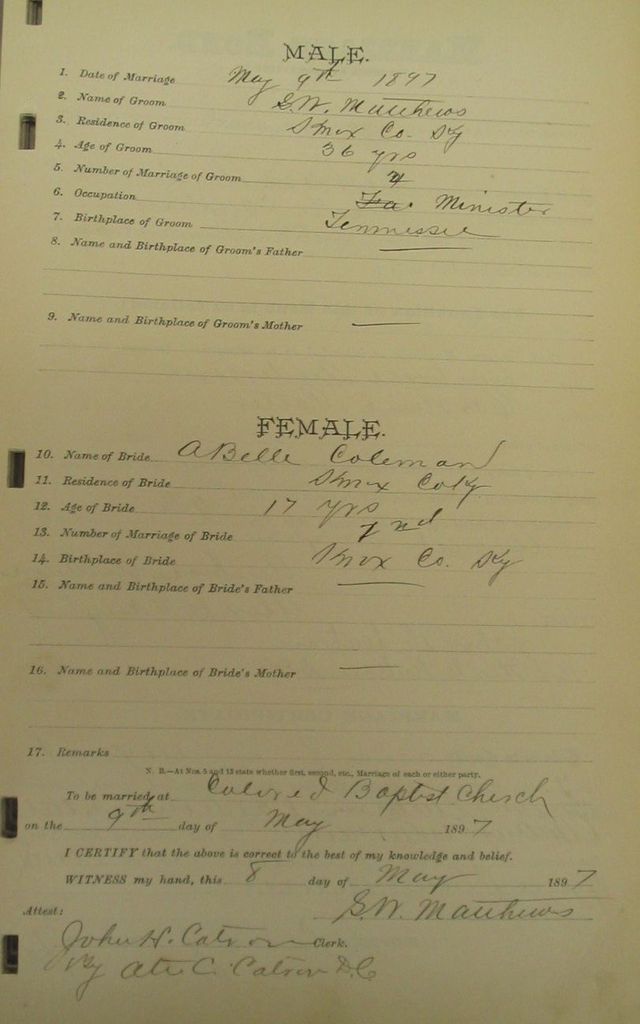 MALE.
1. Date of Marriage May 9th 1897
2. Name of Groom G.W. Matthews
3. Residence of Groom Knox Co. Ky
4. Age of Groom 36 yrs
5. Number of Marriage of Groom
6. Occupation Minister
7. Birthplace of Groom Tennessee
8. Name and Birthplace of Groom's Father
9. Name and Birthplace of Groom's Mother
FEMALE.
10. Name of Bride ABelle Coleman
11. Residence of Bride Knox Co Ky
12. Age of Bride 17 yrs
13. Number of Marriage of Bride
14. Birthplace of Bride Knox Co. Ky
15. Name and Birthplace of Bride's Father
16. Name and Birthplace of Bride's Mother
17. Remarks
N. B.—At Nos. 5 and 13 state whether first, second, etc., Marriage of each or either party.
To be married at Colored Baptist Church
on the 9th day of May 1897
I CERTIFY that the above is correct to the best of my knowledge and belief.
WITNESS my hand, this 8 day of May 1897
G.W. Matthews
Attest:
John H. Catron Clerk.
By C. Catron D.C